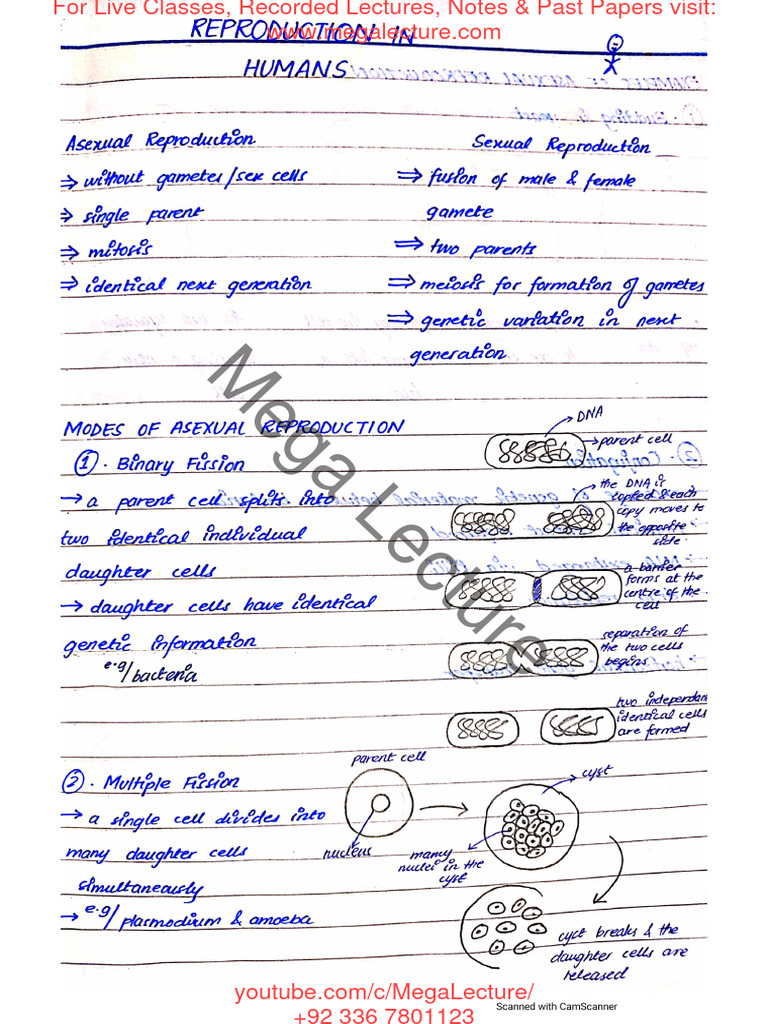 For Live Classes, Recorded Lectures, Notes & Past Papers visit:
www.megalecture.com
REPRODUCTION IN
HUMANS
Asexual Reproduction
⇒ without gametes/sex cells
⇒ single parent
⇒ mitosis
⇒ identical next generation
Sexual Reproduction
⇒ fusion of male & female
gamete
⇒ two parents
⇒ meiosis for formation of gametes
⇒ genetic variation in next
generation
MODES OF ASEXUAL REPRODUCTION
①. Binary Fission
→ a parent cell splits into
two identical individual
daughter cells
→ daughter cells have identical
genetic information
e.g/ bacteria
DNA
parent cell
the DNA is
copied & each
copy moves to
the opposite
side
a barrier
forms at the
centre of the
cell
separation of
the two cells
begins
two independan
identical cells
are formed
②. Multiple Fission
→ a single cell divides into
many daughter cells
simultaneously
→ e.g/ plasmodium & amoeba
parent cell
nucleus
cyst
many
nuclei in the
cyst
cyct breaks & the
daughter cells are
released
Mega Lecture
youtube.com/c/MegaLecture/
+92 336 7801123
Scanned with CamScanner